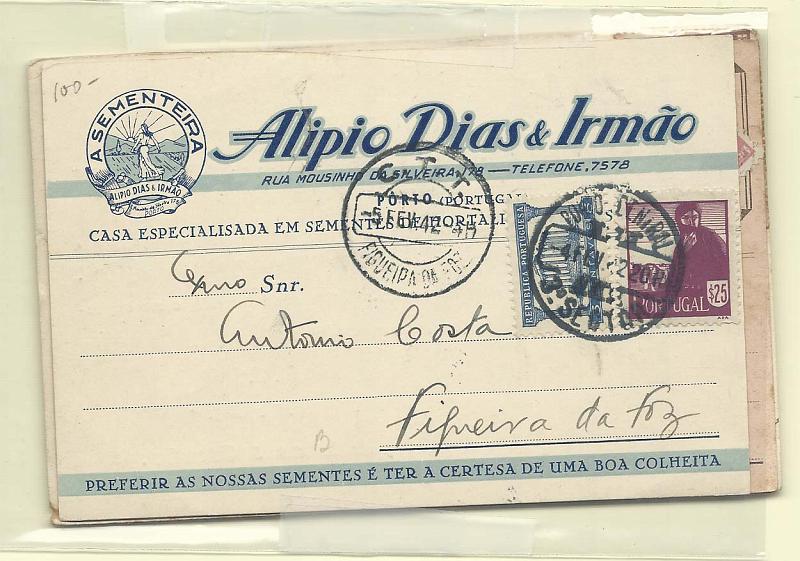 100-
A SEMENTEIRA
ALIPIO DIAS & IRMÃO
Alipio Dias & Irmão
RUA MOUSINHO DA SILVEIRA, 178 — TELEFONE, 7578
PORTO (PORTUGAL)
CASA ESPECIALISADA EM SEMENTES DE HORTALI
CTT
5 FEV 42 4H
FIGUEIRA DA FOZ
REPUBLICA PORTUGUESA
CENTAVOS
PORTO CENTRAL
3ª SECÇÃO
$25
PORTUGAL
Exmo Snr.
António Costa
Figueira da Foz
B
PREFERIR AS NOSSAS SEMENTES É TER A CERTESA DE UMA BOA COLHEITA